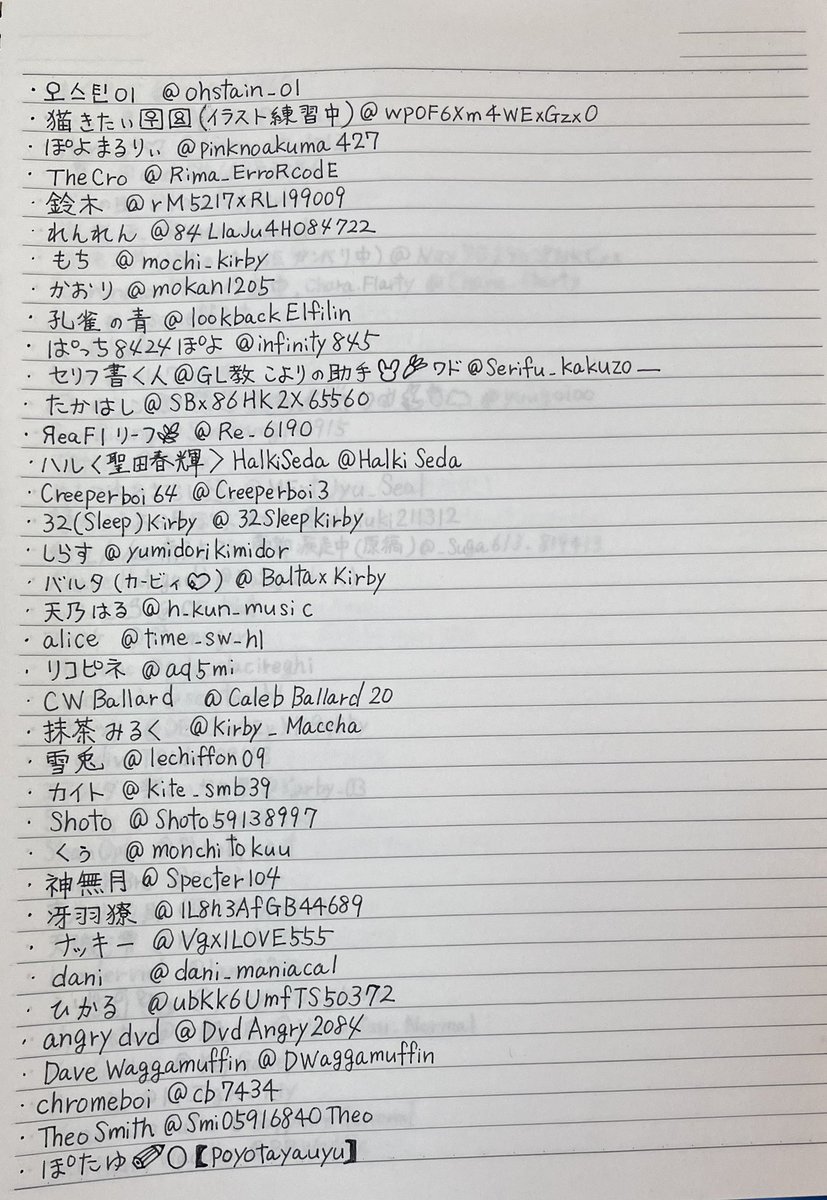 ・오스틴01 @ohstain_01
・猫きたい🈳🈺(イラスト練習中)@wpOF6Xm4WExGzxO
・ぽよまるりぃ @pinknoakuma427
・TheCro @Rima_ErroRcodE
・鈴木 @rM5217xRL199009
・れんれん @84LlaJu4H084722
・もち @mochi_kirby
・かおり @mokan1205
・孔雀の青 @lookbackElfilin
・ぱっち8424ぽよ @infinity845
・セリフ書く人@GL教 こよりの助手 ワド@Serifu_kakuzo_
・たかはし@SBx86HK2X65560
・ЯeaF1リーフ @Re_6190
・ハル〈聖田春輝〉HalkiSeda @HalkiSeda
・Creeperboi64 @Creeperboi3
・32(Sleep)Kirby @32Sleepkirby
・しらす@yumidorikimidor
・バルタ(カービィ)@BaltaxKirby
・天乃はる@h_kun_music
・alice @time_sw_hl
・リコピネ @aq5mi
・CW Ballard @CalebBallard20
・抹茶みるく @Kirby_Maccha
・雪兎 @lechiffon09
・カイト @kite_smb39
・Shoto @Shoto59138997
・くぅ @monchitokuu
・神無月@Specter104
・冴羽獠 @1L8h3AfGB44689
・ナッキー @Vgx1LOVE555
・dani @dani_maniacal
・ひかる @ubKk6UmfTS50372
・angry dvd @DvdAngry2084
・Dave Waggamuffin @DWaggamuffin
・chromeboi @cb7434
・Theo Smith @Smi05916840Theo
・ぽたゆ○【poyotayauyu】